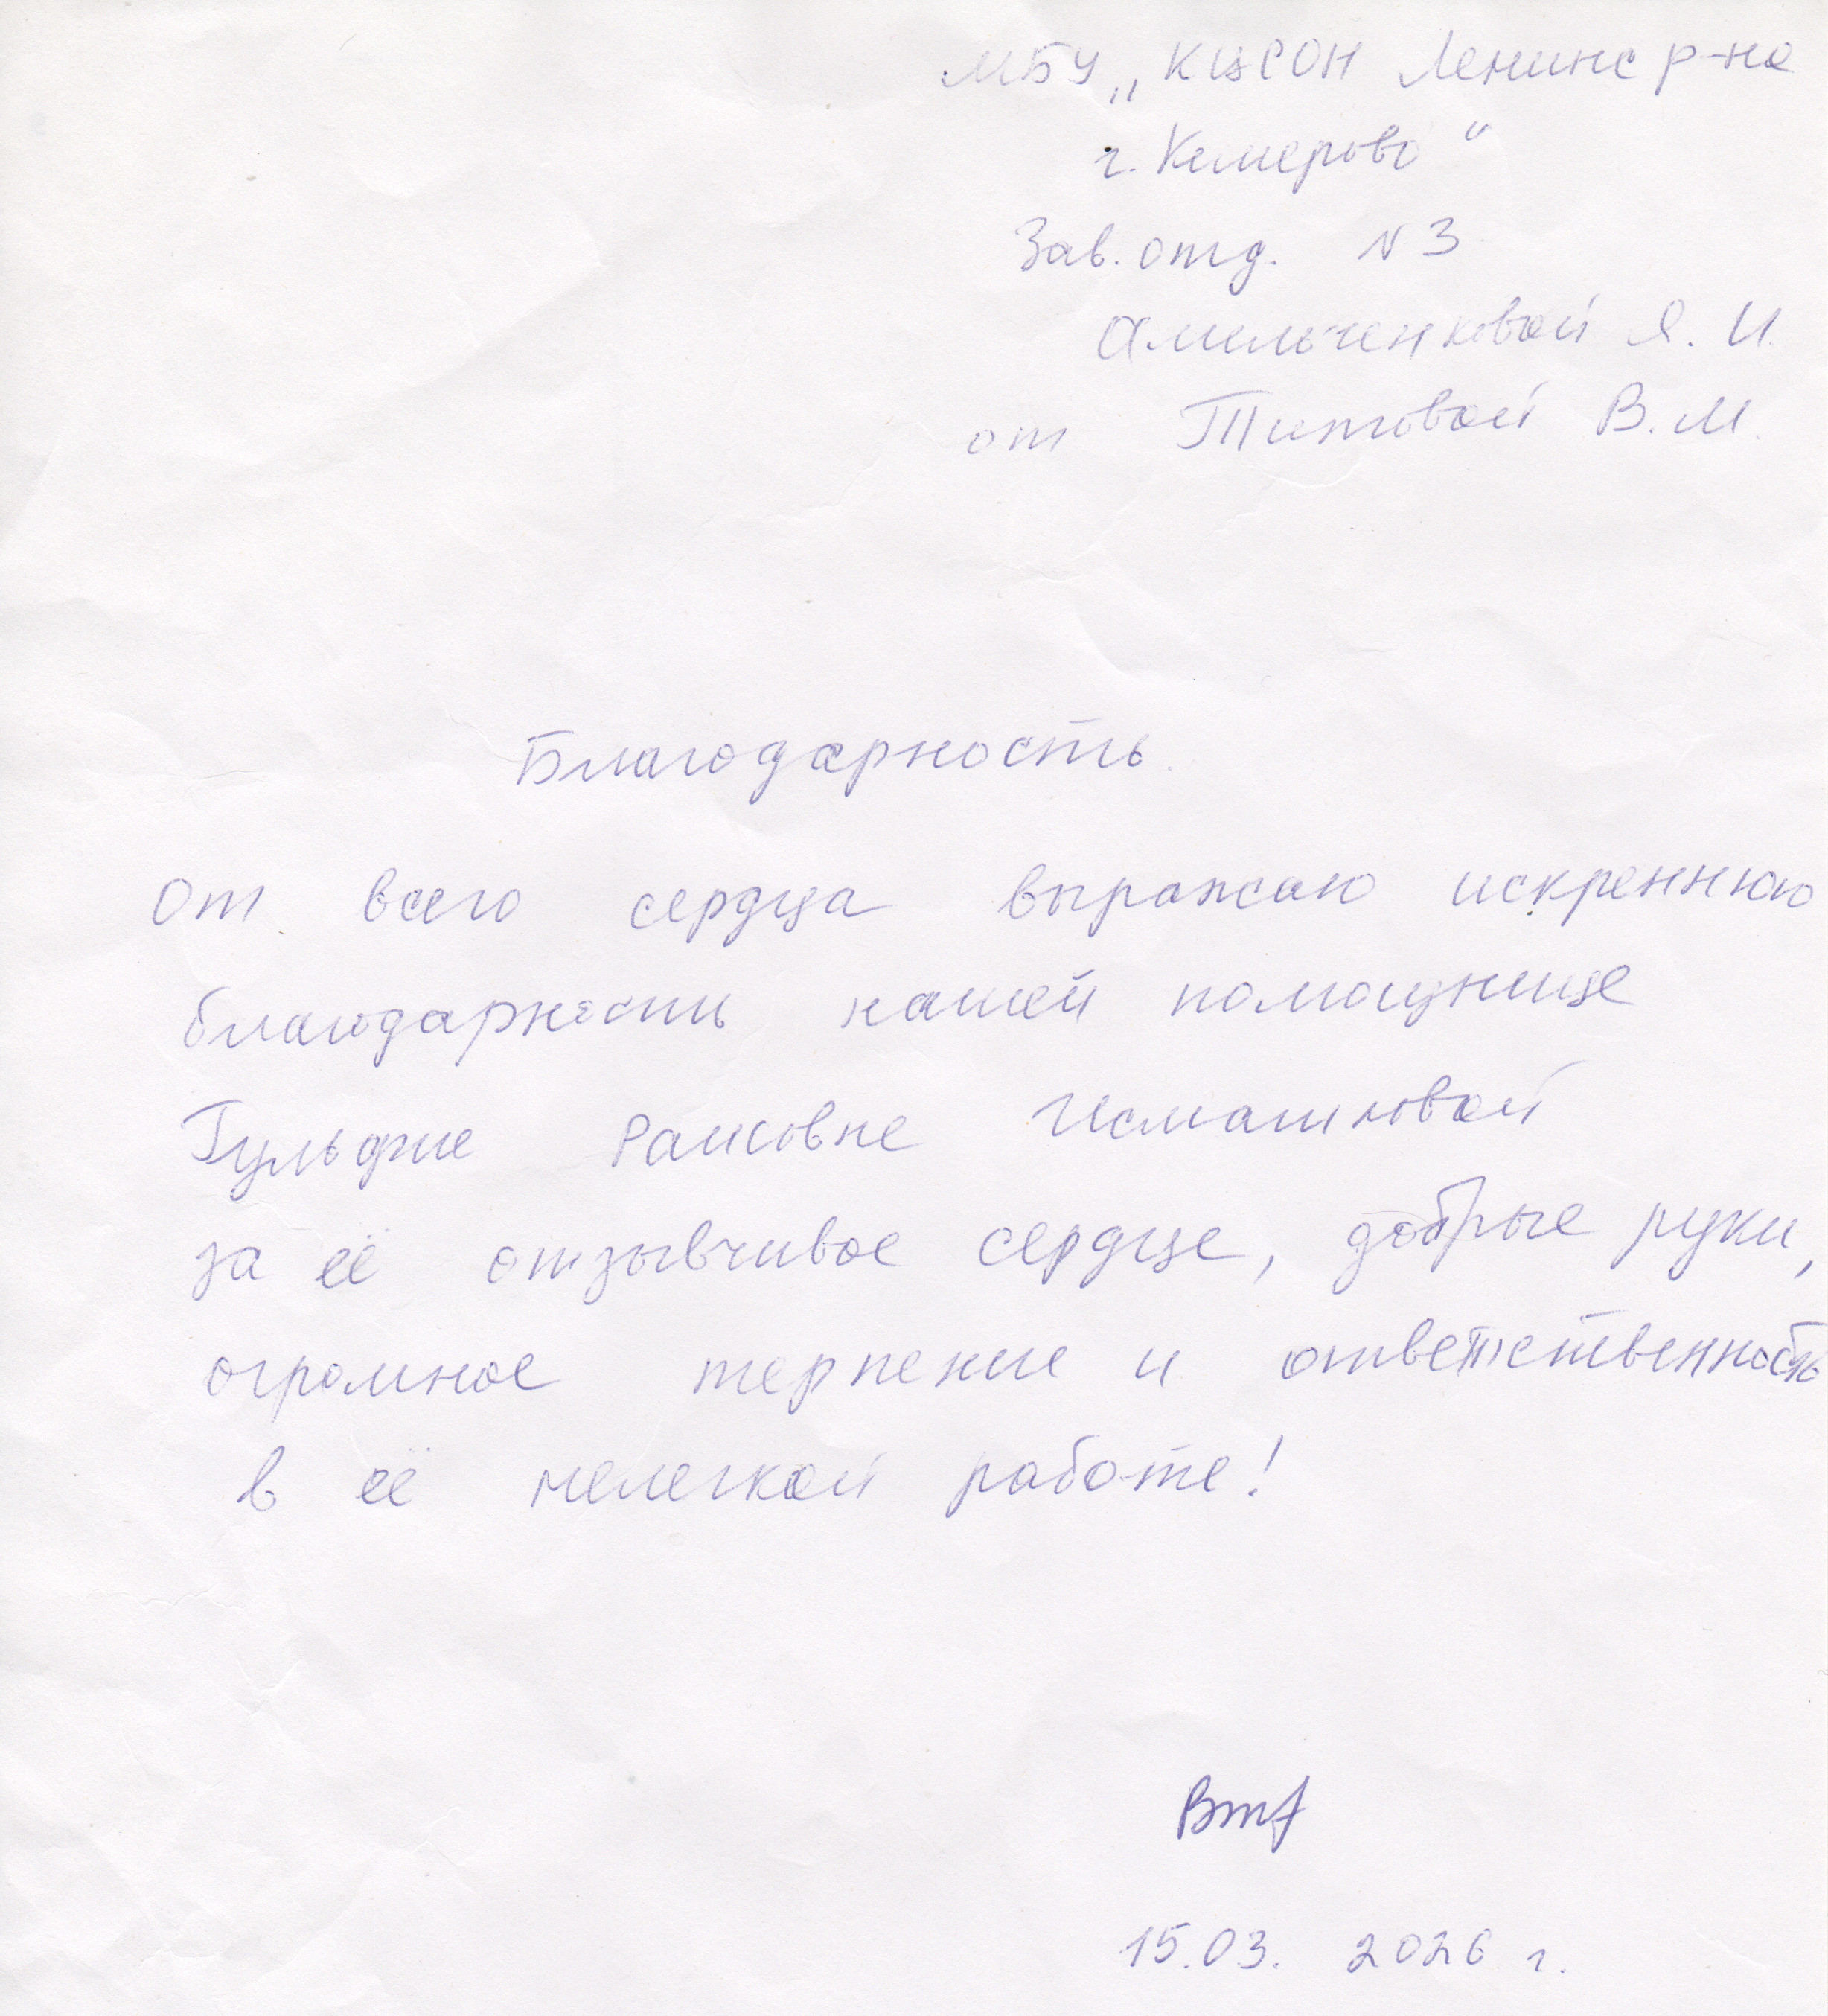 МБУ „КЦСОН Ленинс р-на
г. Кемерово“
Зав. отд. N 3
Амельченковой Я. И.
от Титовой В. М.
Благодарность.
От всего сердца выражаю искреннюю
благодарность нашей помощнице
Гульфие Раисовне Исмашловой
за её отзывчивое сердце, добрые руки,
огромное терпение и ответственность
в её нелегкой работе!
15.03. 2026 г.